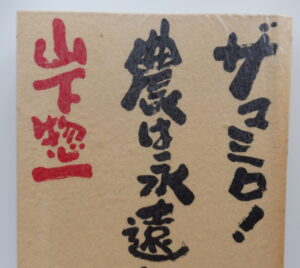 ザマミロ!
農は永遠
山下惣一